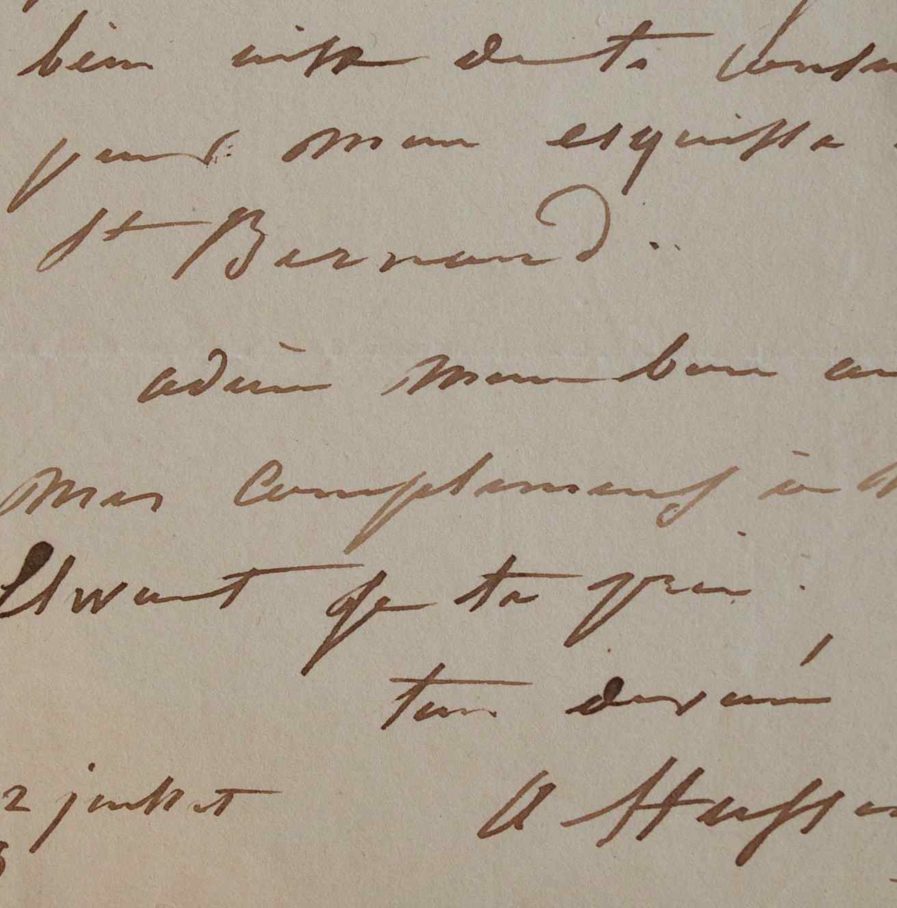 bien aise de te
pour mon esquisse
St Bernard.
adieu mon bon
Mes complimens à
Elwart je te prie.
ton dévoué
2 juillet A